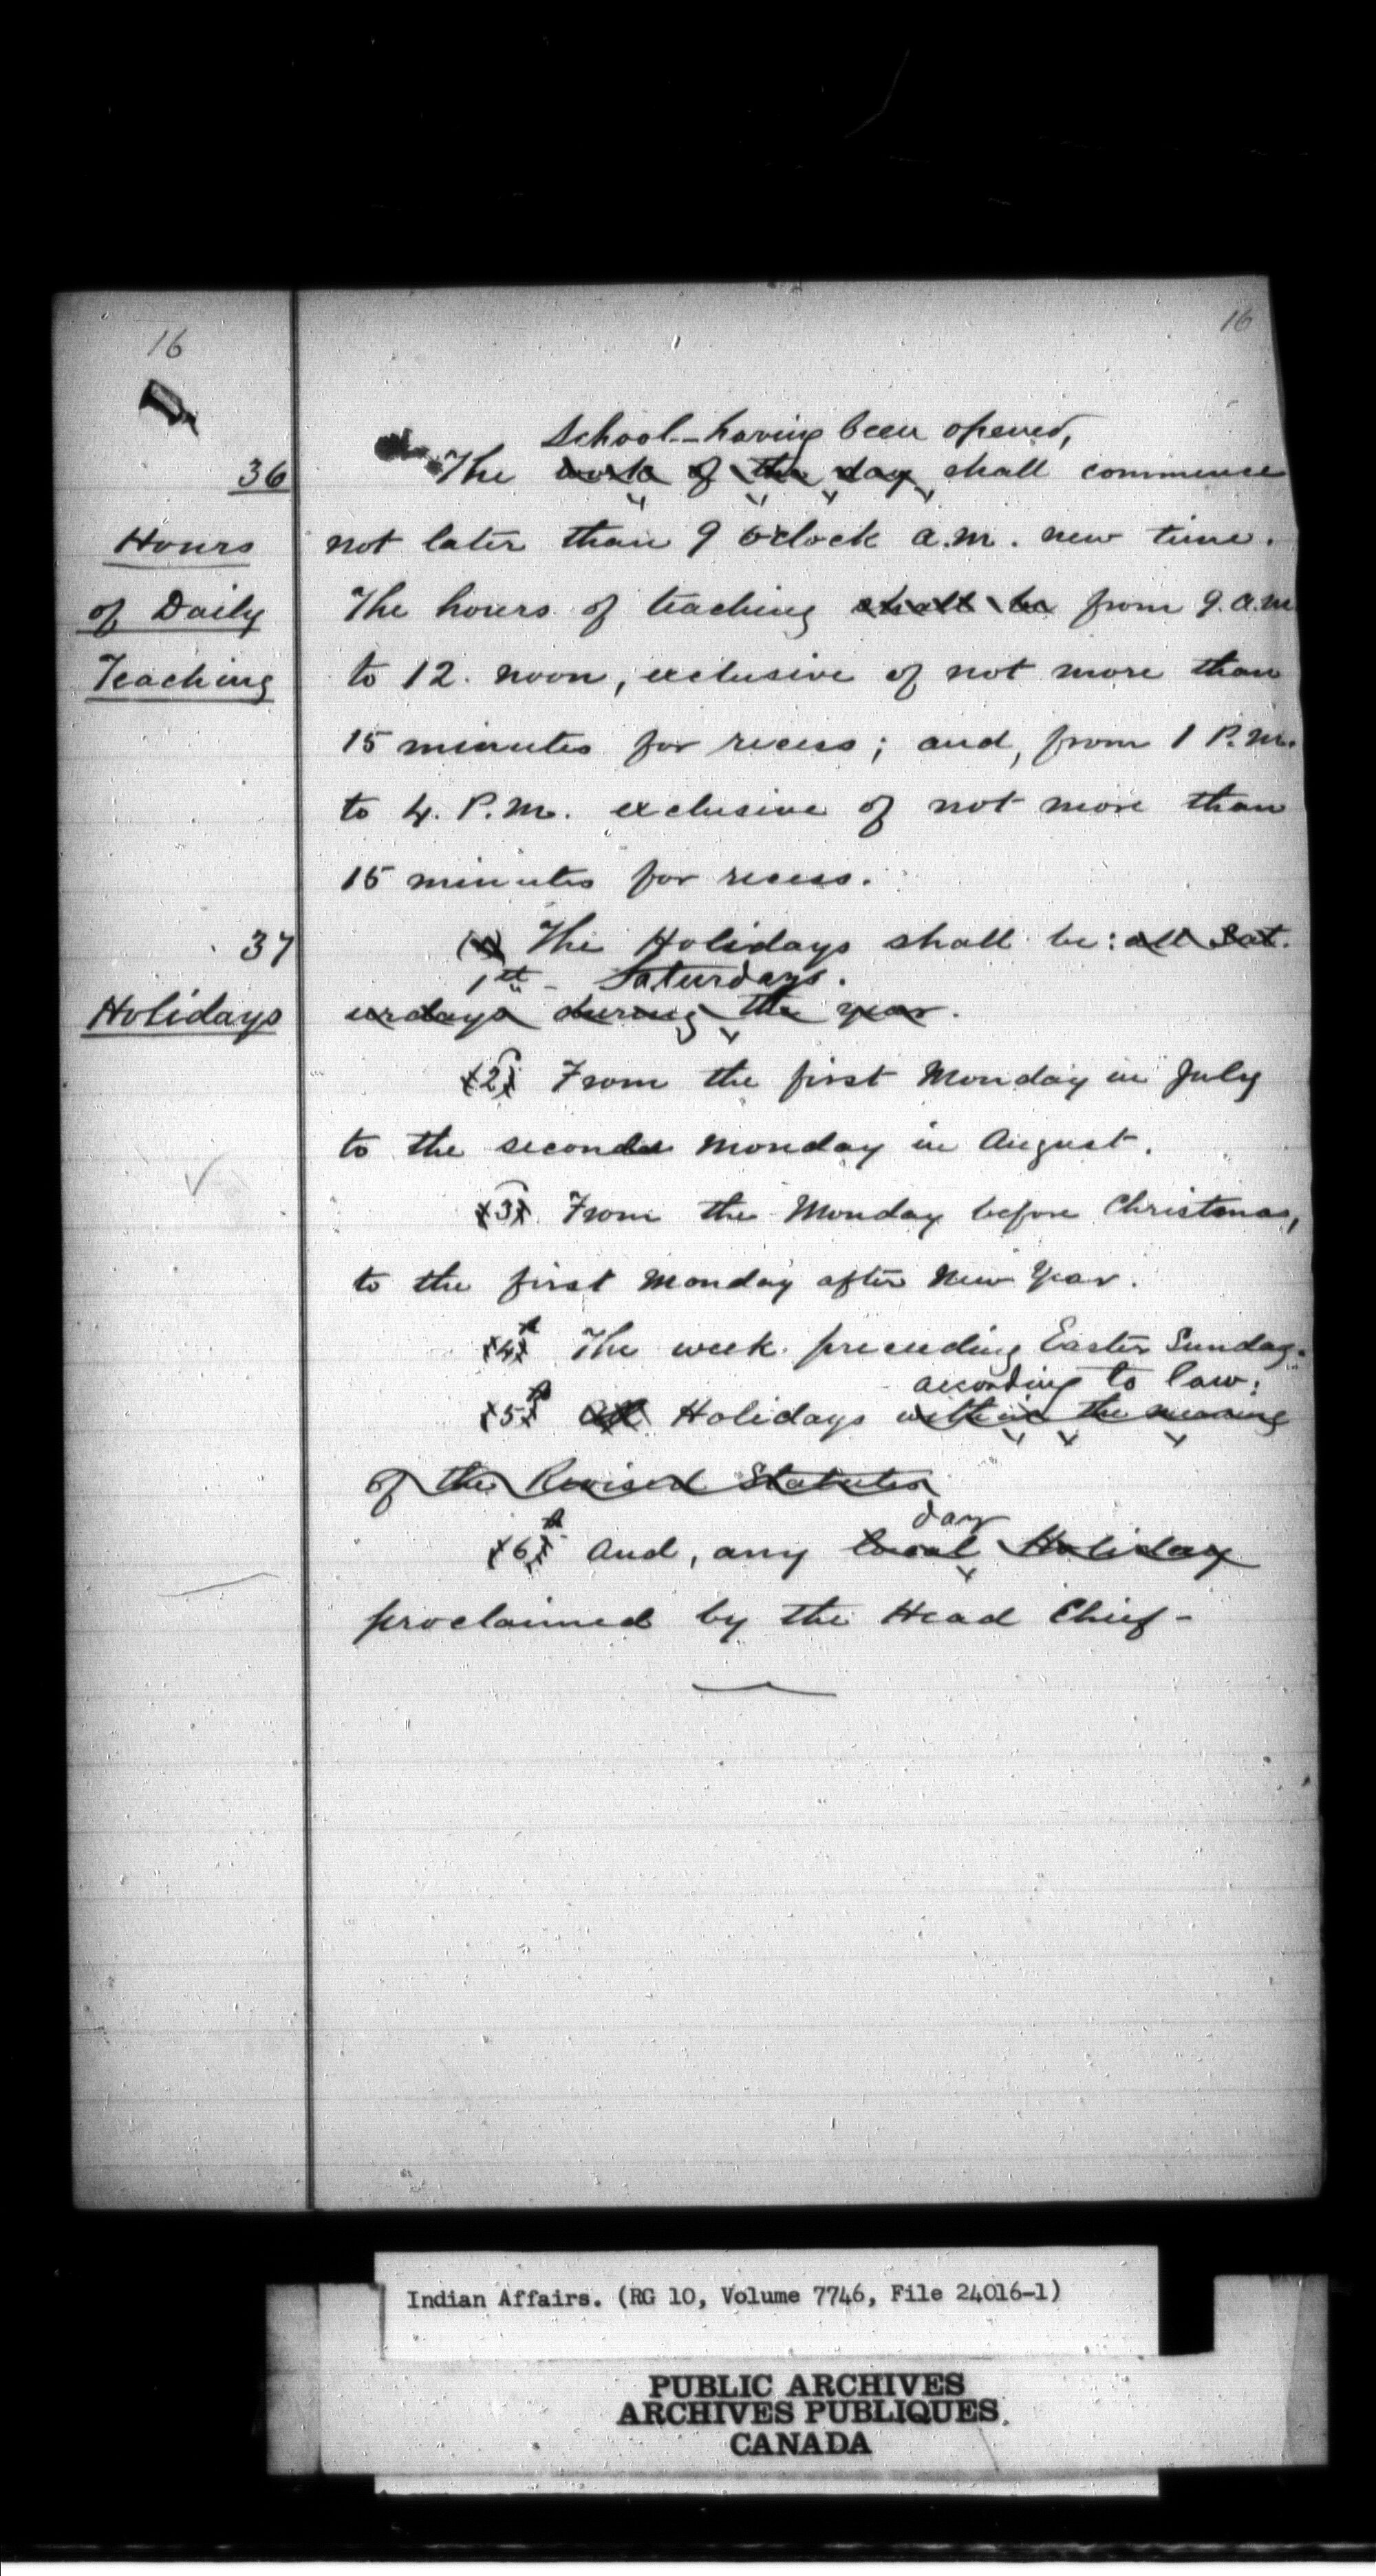 16
16
School - having been opened,
36
The work of the day shall commence
Hours
not later than 9 o'clock a.m. new time.
of Daily
The hours of teaching shall be from 9. a.m
Teaching
to 12. noon, exclusive of not more than
15 minutes for recess; and, from 1 P.M.
to 4. P.M. exclusive of not more than
15 minutes for recess.
37
(1) The Holidays shall be: all Sat-
1st - Saturdays.
Holidays
urdays during the year.
(2) From the first Monday in July
to the second Monday in August.
(3) From the Monday before Christmas,
to the first Monday after New Year.
(4) The week preceeding Easter Sunday.
according to law:
(5) All Holidays within the meaning
of the Revised Statutes
day
(6) And, any local Holiday
proclaimed by the Head Chief -
Indian Affairs. (RG 10, Volume 7746, File 24016-1)
PUBLIC ARCHIVES
ARCHIVES PUBLIQUES
CANADA